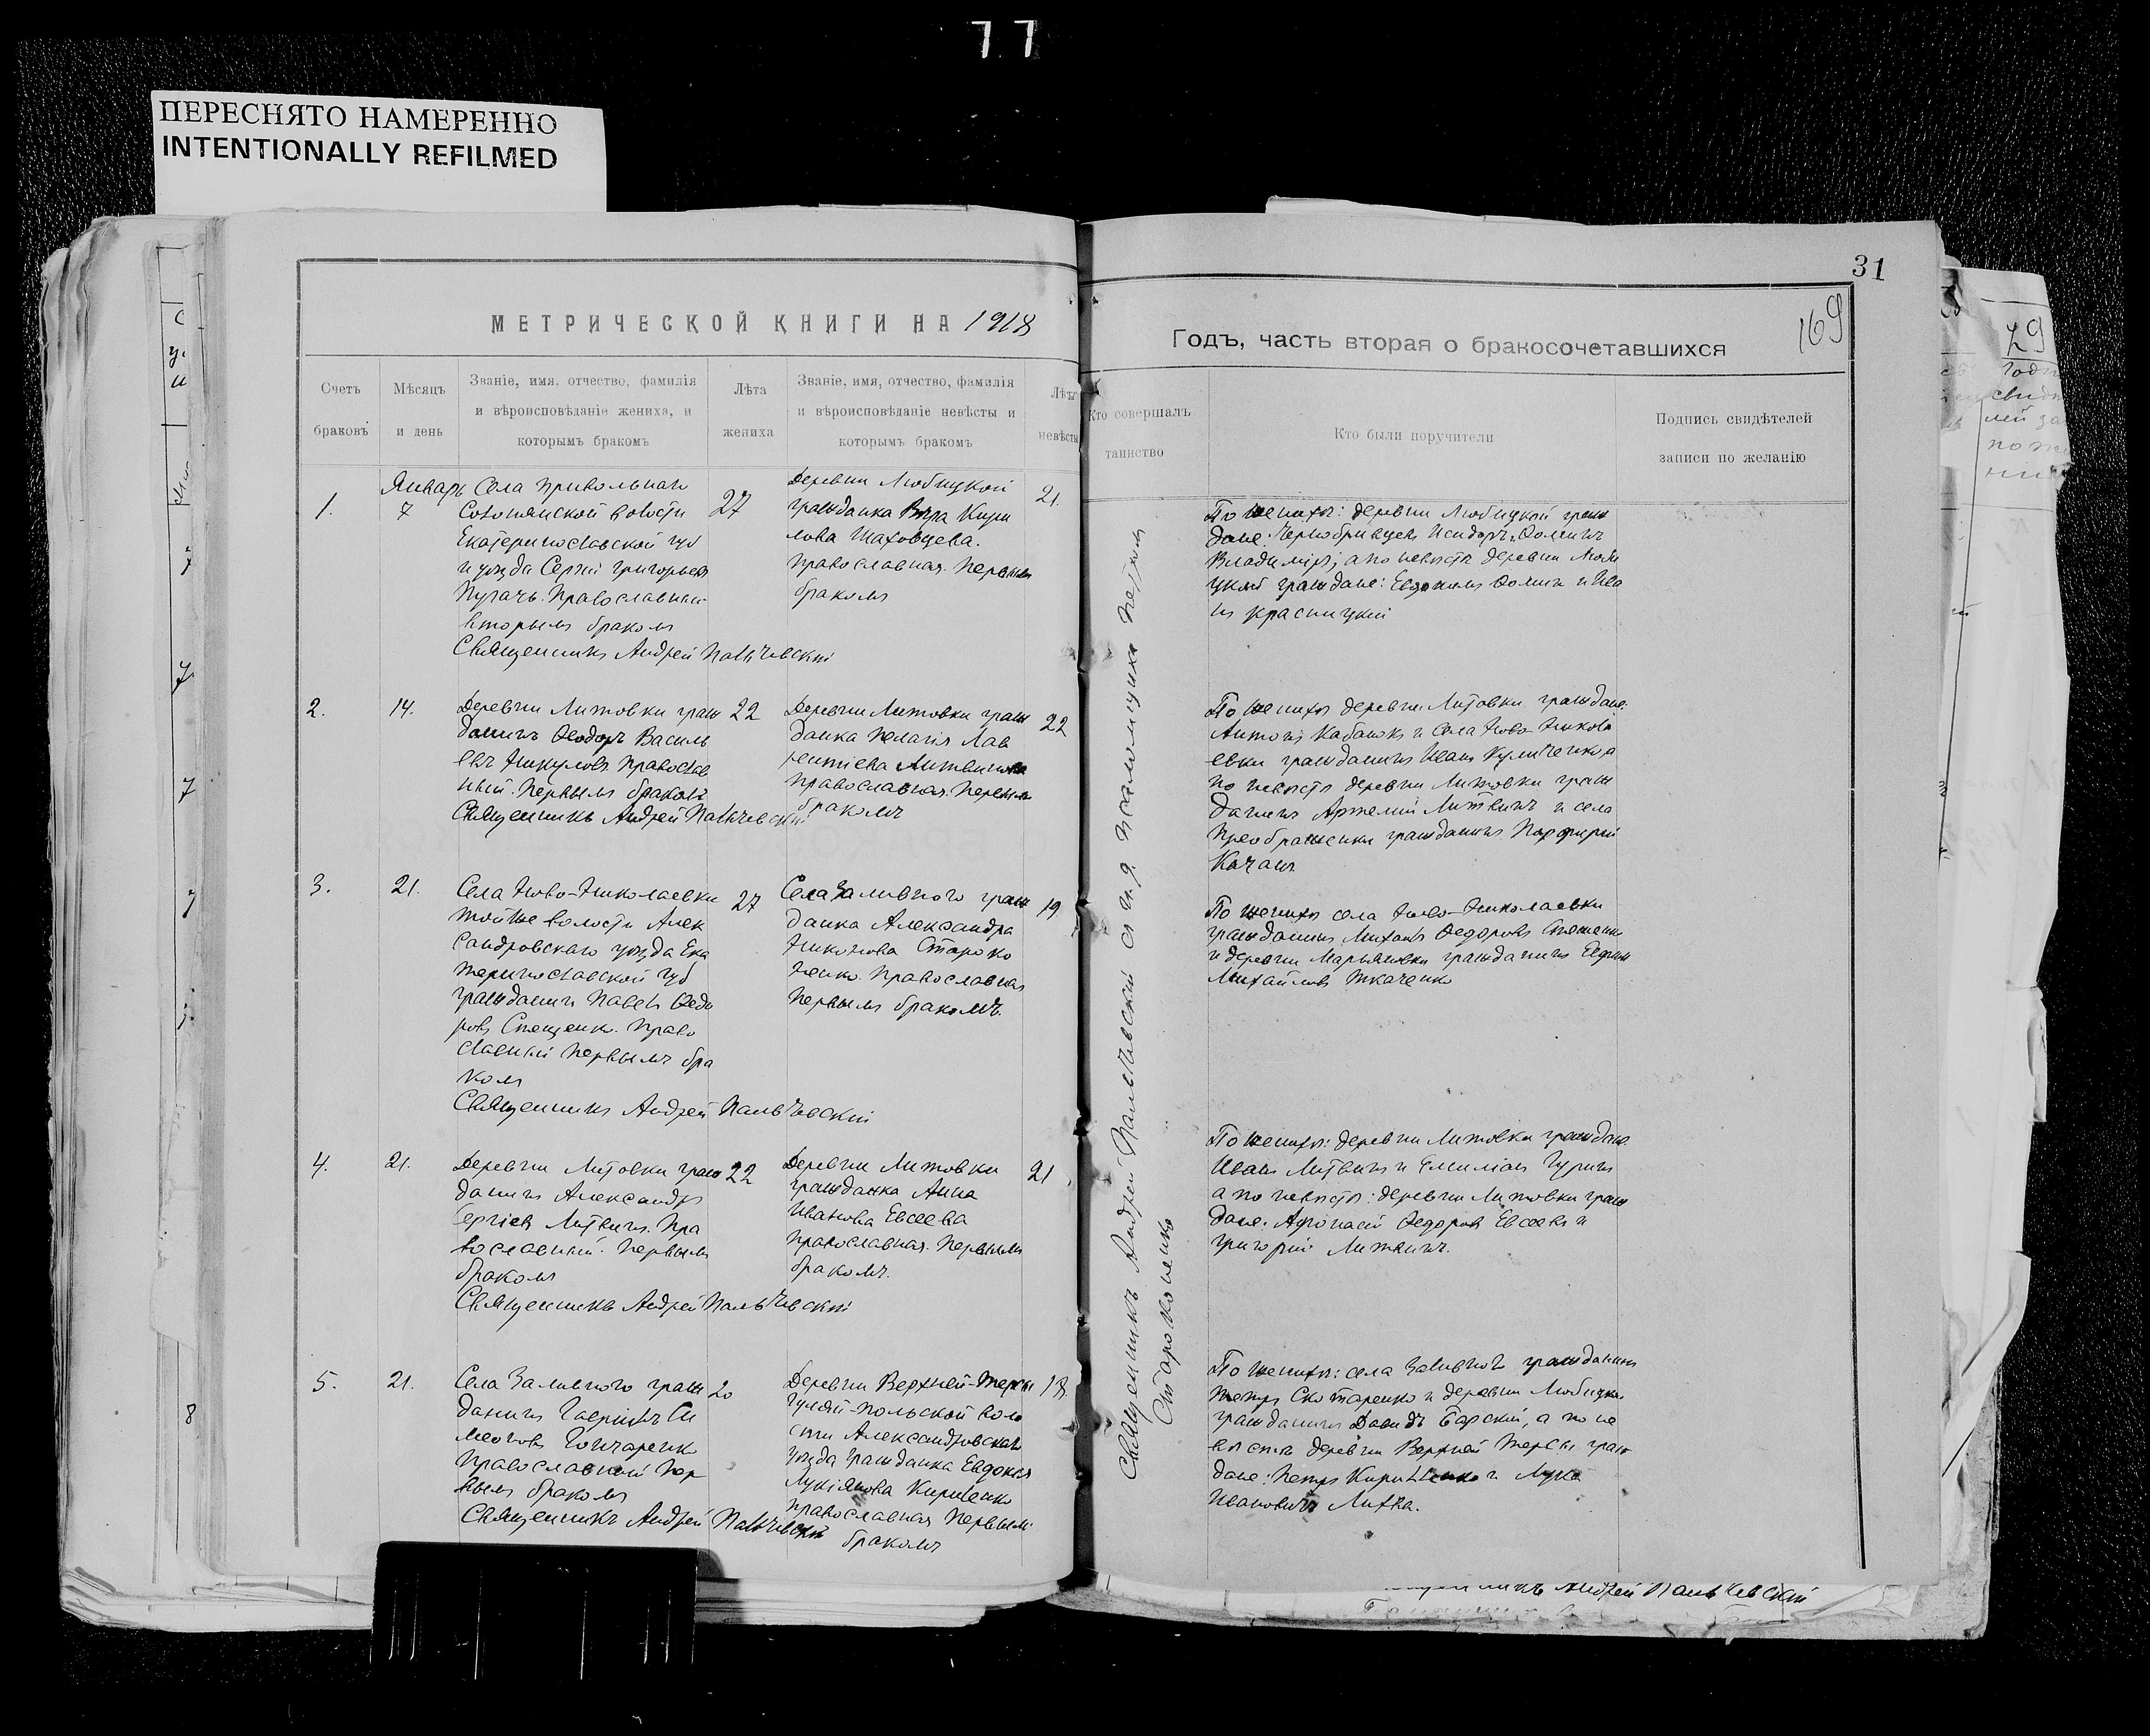 77
ПЕРЕСНЯТО НАМЕРЕННО
INTENTIONALLY REFILMED
31
169
МЕТРИЧЕСКОЙ КНИГИ НА 1918
Годъ, часть вторая о бракосочетавшихся
Счетъ браковъ
Мѣсяцъ и день
Званіе, имя, отчество, фамилія
и вѣроисповѣданіе жениха, и
которымъ бракомъ
Лѣта жениха
Званіе, имя, отчество, фамилія
и вѣроисповѣданіе невѣсты и
которымъ бракомъ
Лѣта невѣсты
Кто совершалъ таинство
Кто были поручители
Подпись свидѣтелей
записи по желанію
1.
Январь
7
Села Привольнаго
волости
Екатеринославской губ
и уѣзда Сергій Григорьевъ
Пугачъ. Православный
вторымъ бракомъ
Священникъ Андрей Пальчевскій
27
Деревни Любицкой
гражданка Вѣра Кири
лова Шаховцева.
Православная. Первымъ
бракомъ
21.
По женихѣ: деревни Любицкой граж
дане: Чернобривцевъ Исидоръ и Фоминъ
Владиміръ; а по невѣстѣ деревни Люби
цкой граждане: Евдокимъ Фоминъ и Ива
нъ Красницкій
2.
14.
Деревни Литовки граж
данинъ Феодоръ Василь
евъ Православ
ный. Первымъ бракомъ
Священникъ Андрей Пальчевскій
22
Деревни Литовки граж
данка Пелагія Лав
рентіева Литвинова
Православная. Первымъ
бракомъ
22
По женихѣ деревни Литовки граждане:
Антонъ Кабанокъ и села Ново-Никола
евки гражданинъ Иванъ Куличенко, а
по невѣстѣ деревни Литовки граж
данинъ Артемій Литвинъ и села
Преображенки гражданинъ Порфирій
Качанъ
3.
21.
Села Ново-Николаевки
той же волости Алек
сандровскаго уѣзда Ека
теринославской губ
гражданинъ Павелъ Федо
ровъ Спещенко. Право
славный первымъ бра
комъ
Священникъ Андрей Пальчевскій
27
Села Заливного граж
данка Александра
Никонова Староко
ненко. Православная
Первымъ бракомъ.
19
По женихѣ села Ново-Николаевки
гражданинъ Михаилъ Федоровъ
и деревни Марьяновки гражданинъ
Михайловъ Ткаченко
4.
21.
Деревни Литовки граж
данинъ Александръ
Сергіевъ Литвинъ. Пра
вославный. Первымъ
бракомъ
Священникъ Андрей Пальчевскій
22
Деревни Литовки
гражданка Анна
Иванова Евсеева
Православная. Первымъ
бракомъ.
21
По женихѣ: деревни Литовки граждане
Иванъ Литвинъ и Емиліанъ Гуринъ
а по невѣстѣ: деревни Литовки граж
дане: Афонасій Федоровъ Евсеевъ и
Григорій Литвинъ.
5.
21.
Села Заливного граж
данинъ Гавріилъ Си
меоновъ Гончаренко
Православный Пер
вымъ бракомъ
Священникъ Андрей Пальчевскій
20
Деревни Верхней-Терсы
Гуляй-Польской воло
сти Александровскаго
уѣзда гражданка Евдокія
Лукіянова Кириленко
православная первымъ
бракомъ
18.
По женихѣ: села Заливного гражданинъ
Петръ Скотаренко и деревни Любицкой
гражданинъ Давидъ Барскій, а по не
вѣстѣ деревни Верхней Терсы граж
дане: Петръ Кириленко и Лука
Ивановичъ Литва.
Священникъ Андрей Пальчевскій и и.д. псаломщика
Староконенко
Андрей Пальчевскій